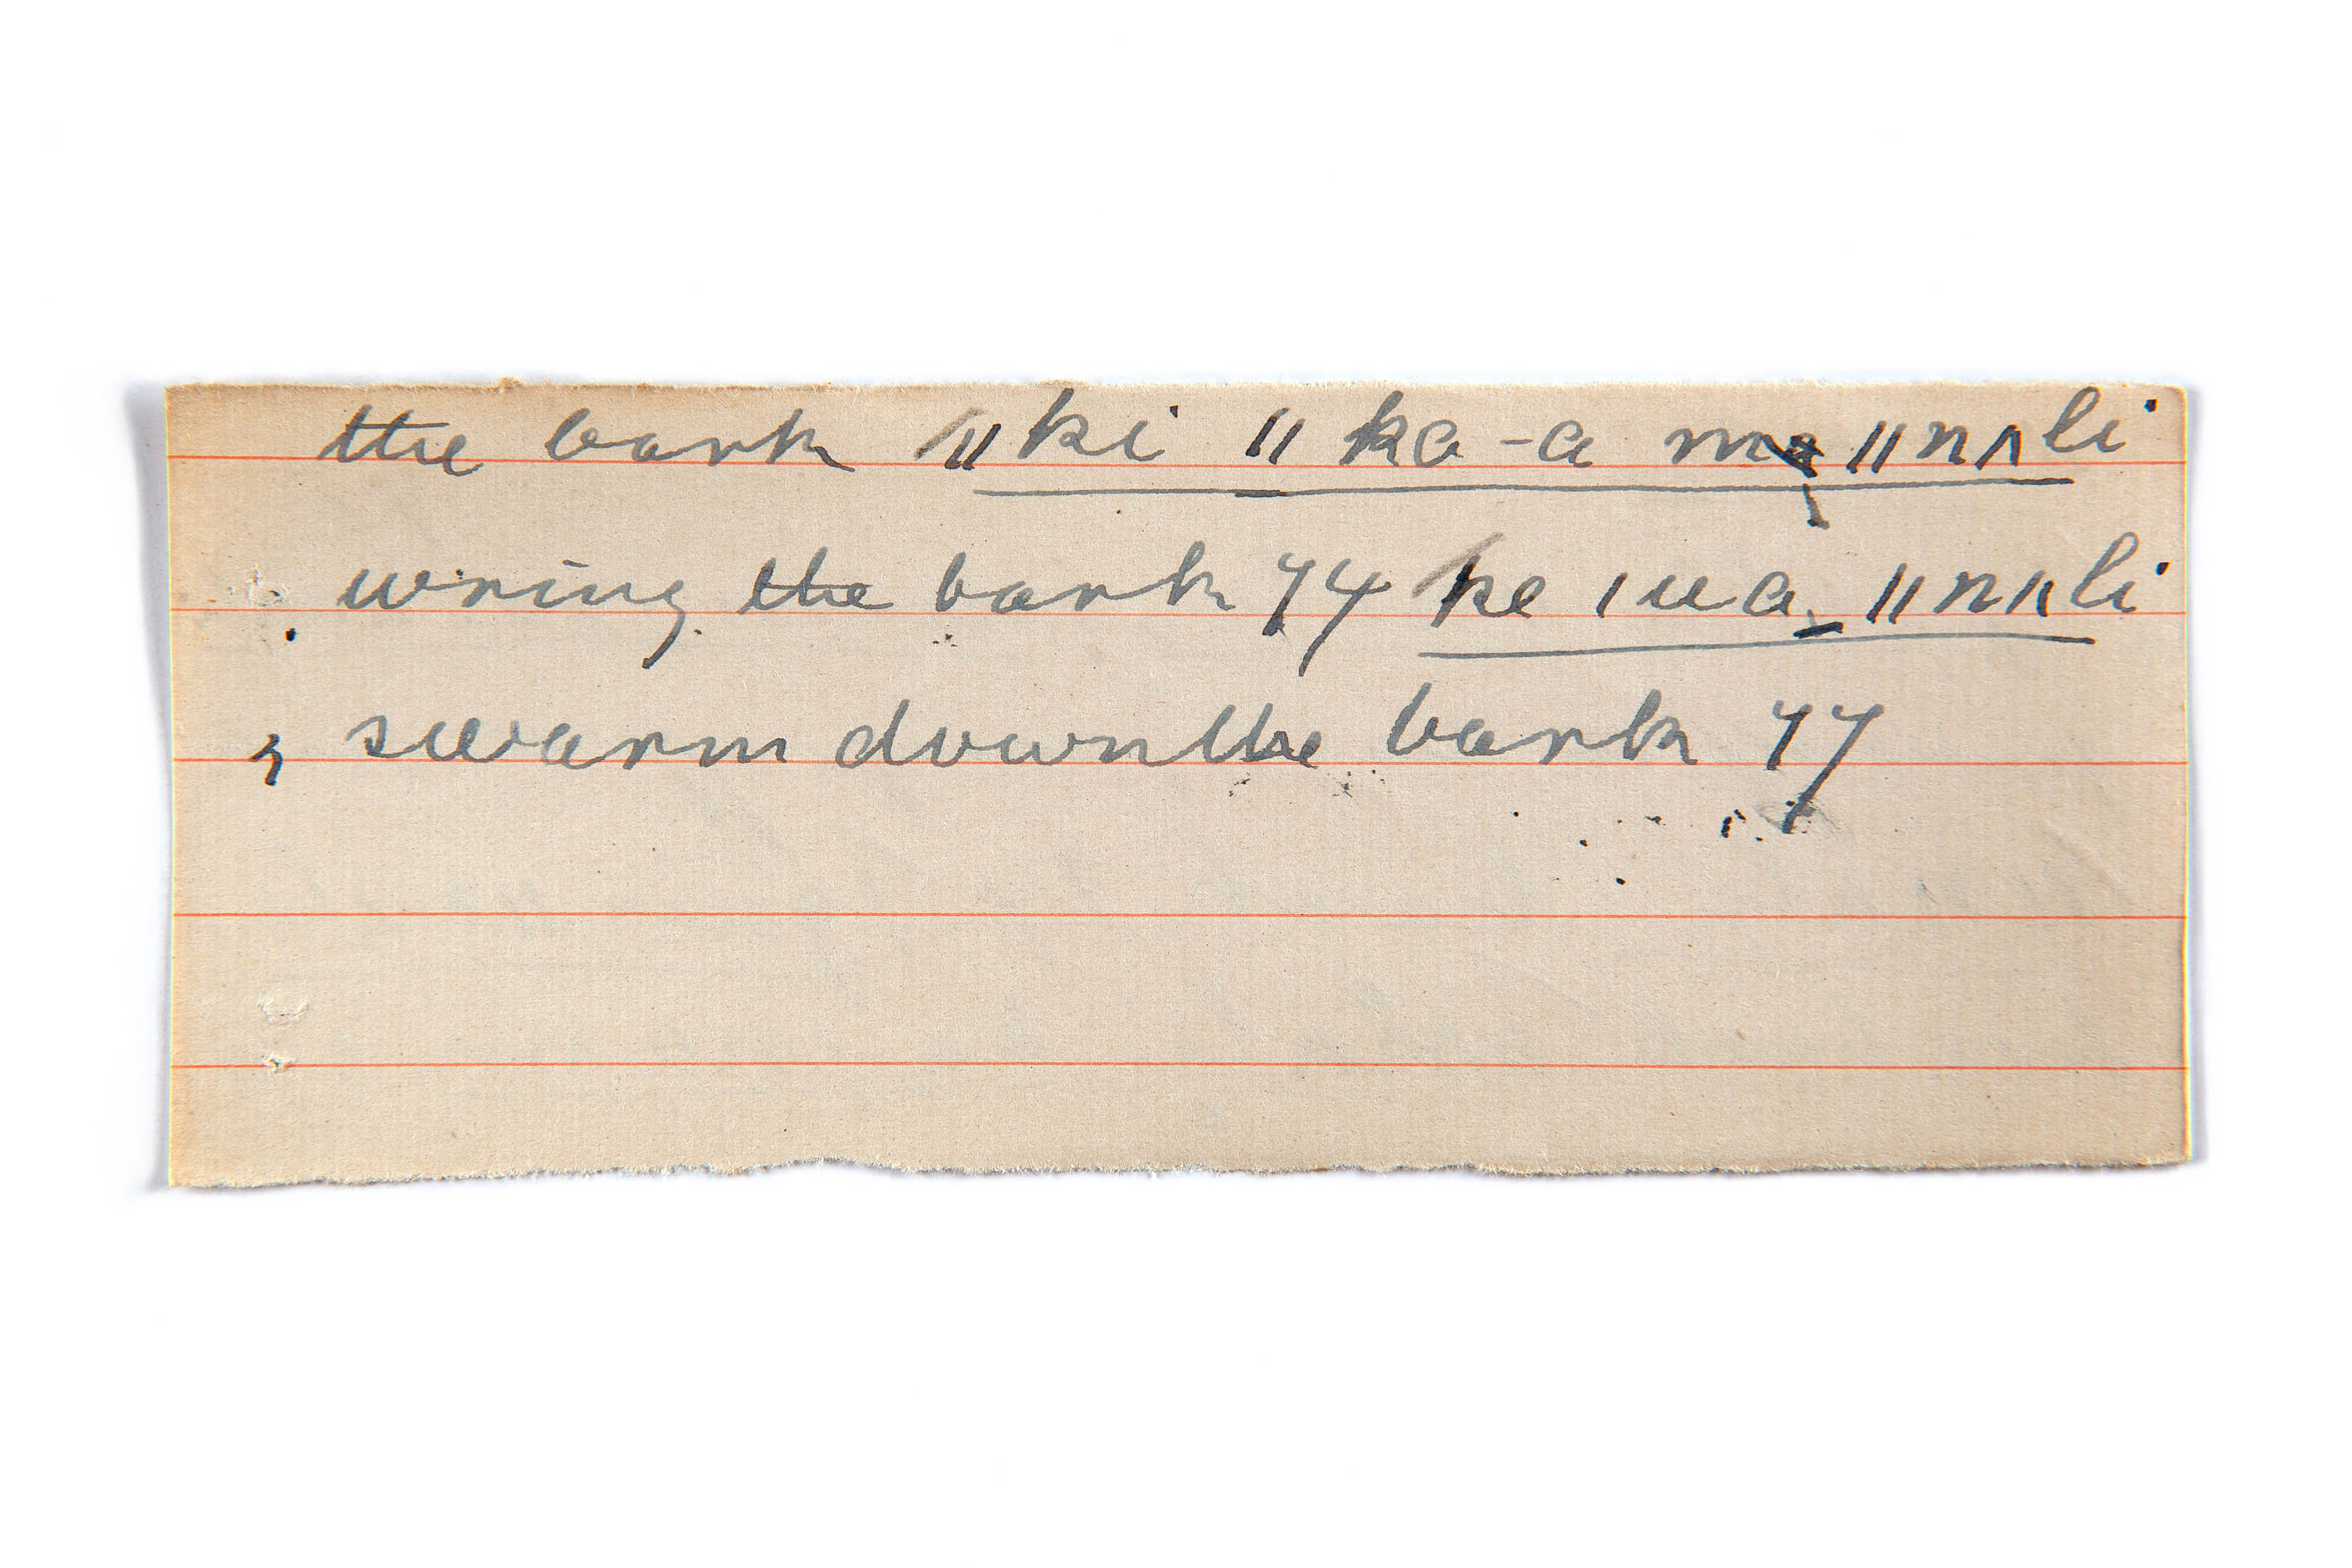 the bark "ki "ka-a ma "nnli
wring the bark 44 ke ıua "nnli
, swarm down the bark 44